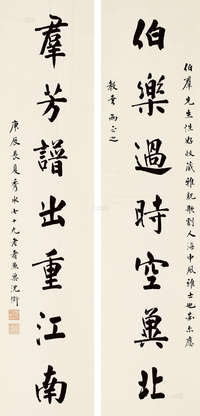 伯羣先生性好收藏雅耽歌劇人海中風雅士也書應
正之
伯樂過時空冀北
羣芳譜出重江南
庚辰長夏秀水七十九老者兼巢沈衛